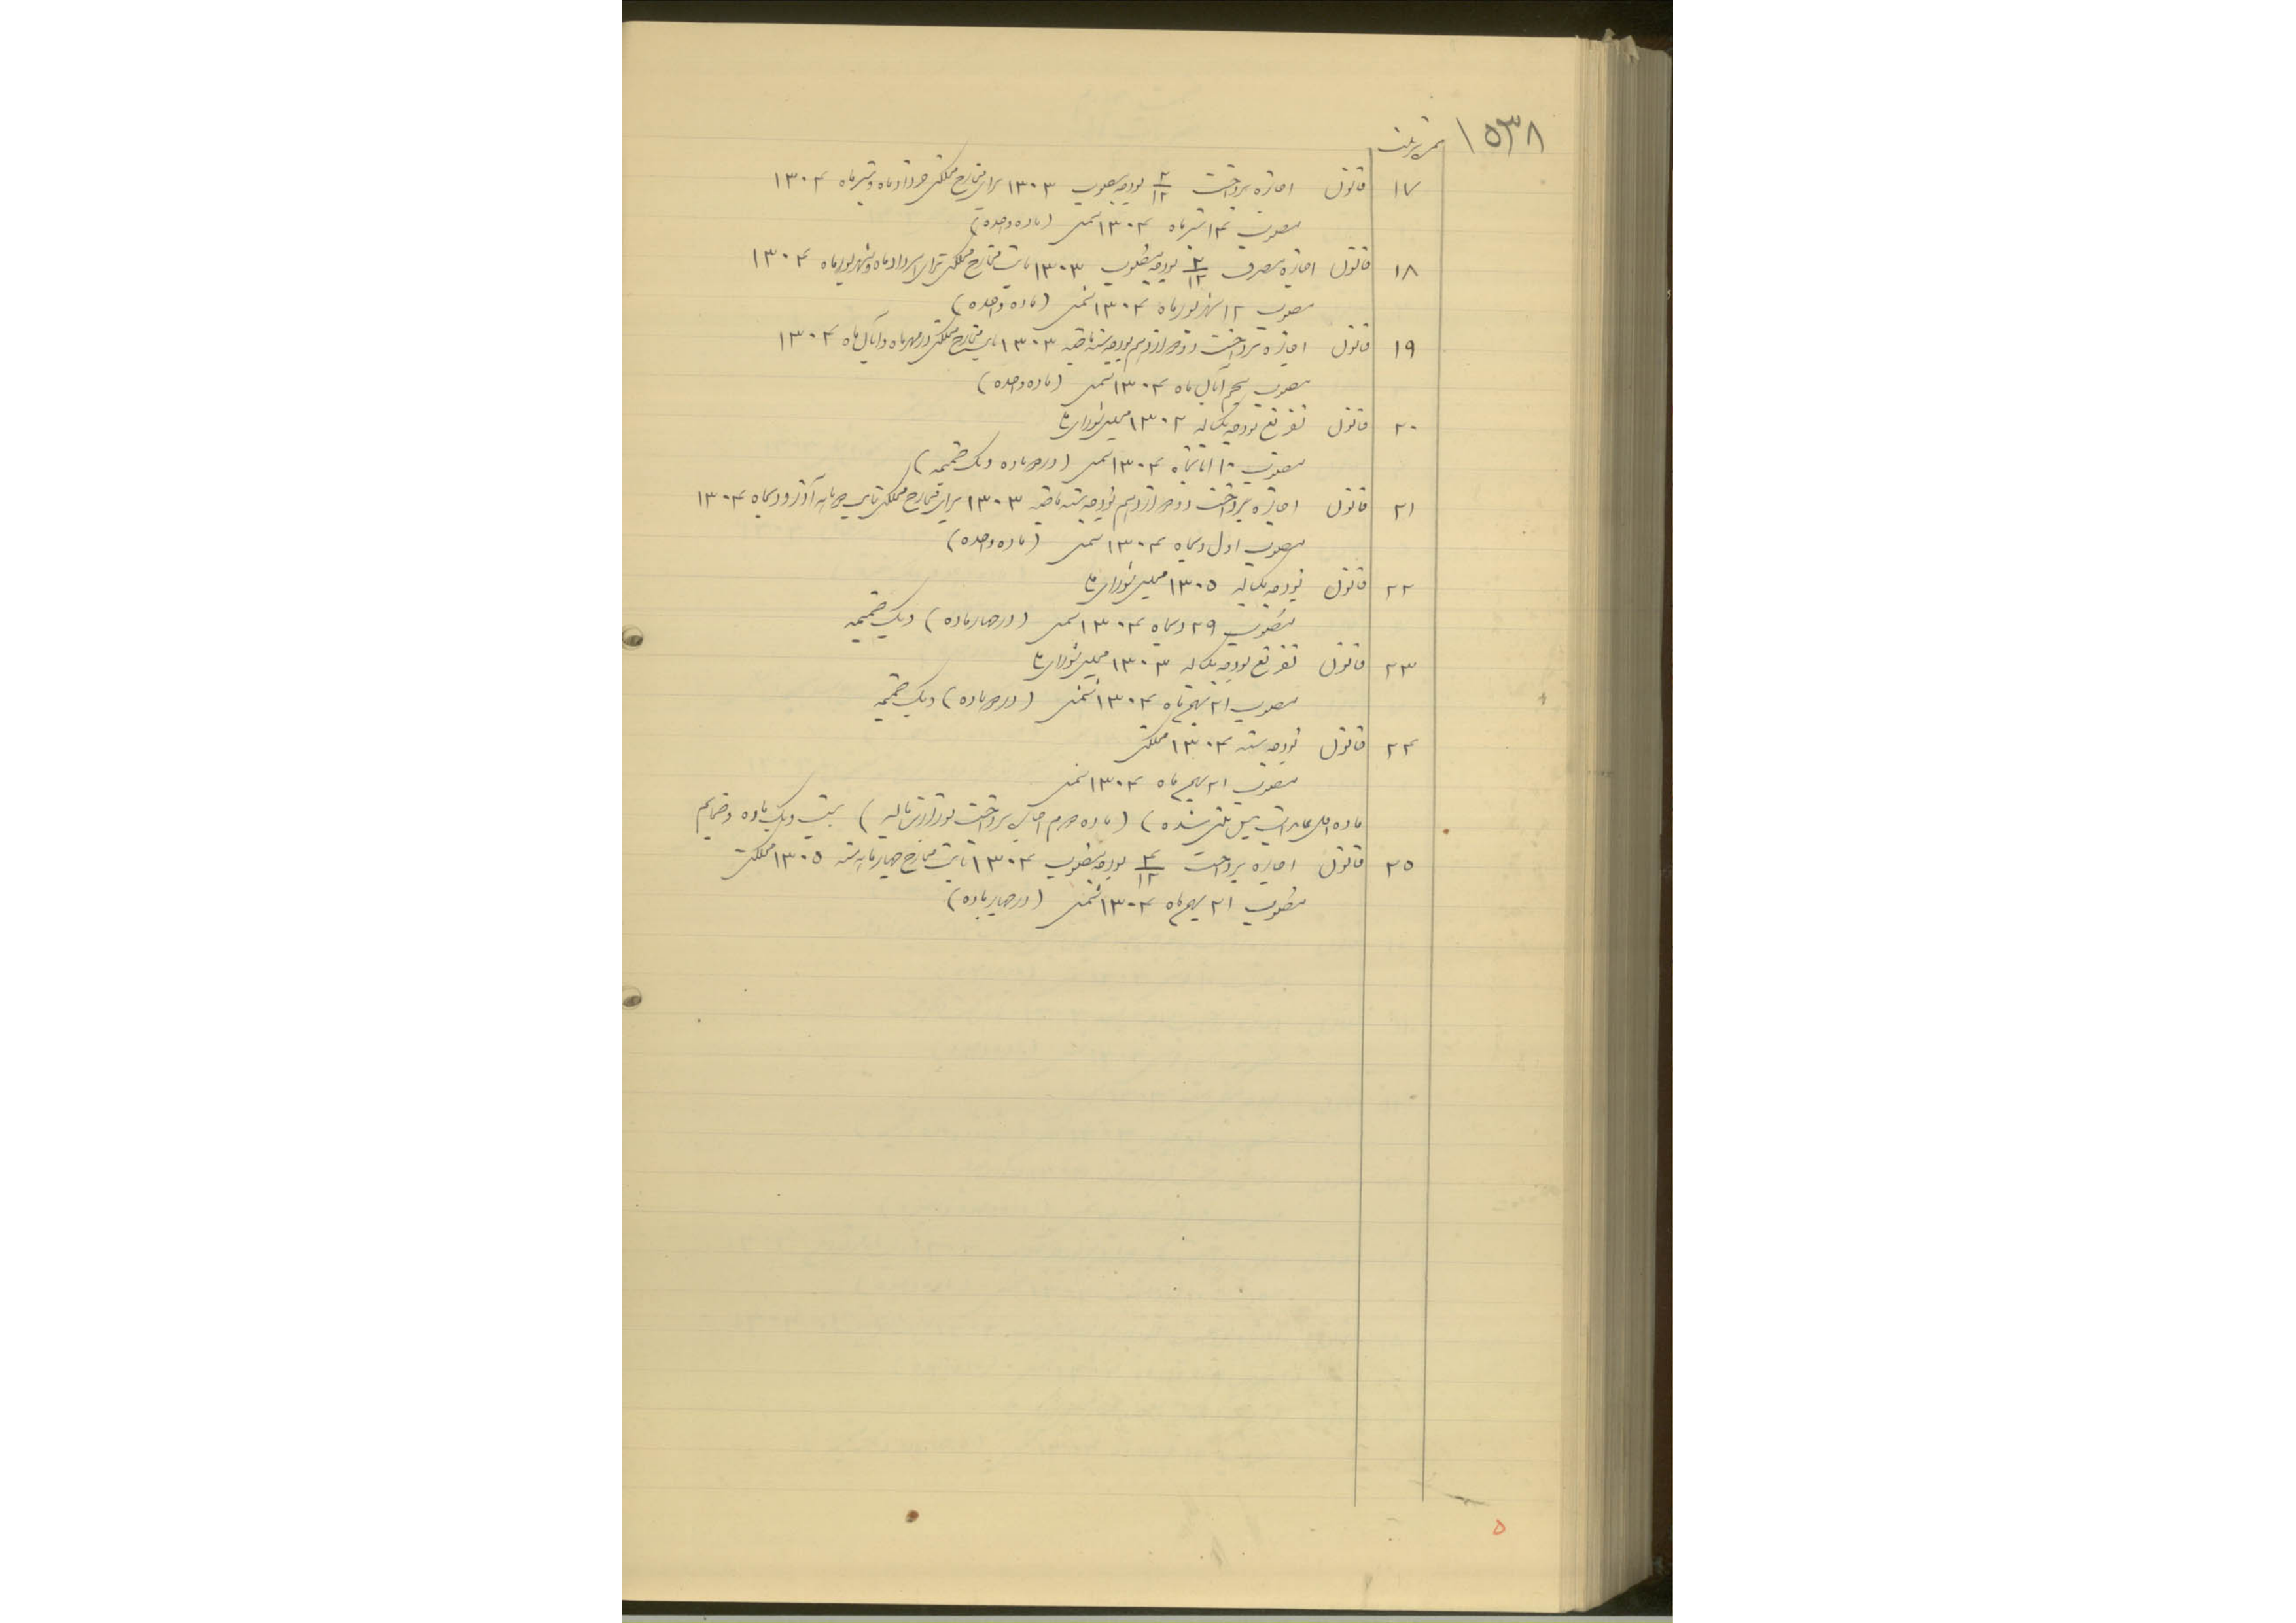 ۱۵۳۸
۱۷ قانون اجازه پرداخت ۲/۱۲ بودجه مصوب ۱۳۰۳ برای مخارج مملکتی خرداد ماه و تیر ماه ۱۳۰۴
مصوب ۱۴ تیر ماه ۱۳۰۴ شمسی (ماده واحده)
۱۸ قانون اجازه مصرف ۲/۱۲ بودجه مصوب ۱۳۰۳ بابت مخارج مملکتی مرداد ماه و شهریور ماه ۱۳۰۴
مصوب ۱۲ شهریور ماه ۱۳۰۴ شمسی (ماده واحده)
۱۹ قانون اجازه پرداخت دو دوازدهم بودجه سنه ماضیه ۱۳۰۳ بابت مخارج مملکتی در مهر ماه و آبان ماه ۱۳۰۴
مصوب پنجم آبان ماه ۱۳۰۴ شمسی (ماده واحده)
۲۰ قانون تفریغ بودجه یکساله ۱۳۰۲ مجلس شورای ملی
مصوب ۱۰ ۱۳۰۴ شمسی (در دو ماده و یک ضمیمه)
۲۱ قانون اجازه پرداخت دو دوازدهم بودجه سنه ماضیه ۱۳۰۳ برای مخارج مملکتی آذر و دیماه ۱۳۰۴
مصوب اول دیماه ۱۳۰۴ شمسی (ماده واحده)
۲۲ قانون بودجه یکساله ۱۳۰۵ مجلس شورای ملی
مصوب ۲۹ دیماه ۱۳۰۴ شمسی (در چهار ماده) و یک ضمیمه
۲۳ قانون تفریغ بودجه یکساله ۱۳۰۳ مجلس شورای ملی
مصوب ۲۱ بهمن ماه ۱۳۰۴ شمسی (در دو ماده) و یک ضمیمه
۲۴ قانون بودجه سنه ۱۳۰۴ مملکتی
مصوب ۲۱ بهمن ماه ۱۳۰۴ شمسی
ماده شده) (ماده پرداخت مالیه) بیست و یک ماده و ضمایم
۲۵ قانون اجازه پرداخت ۴/۱۲ بودجه مصوب ۱۳۰۴ بابت مخارج چهار ماهه سنه ۱۳۰۵ مملکتی
مصوب ۲۱ بهمن ماه ۱۳۰۴ شمسی (در چهار ماده)
۵